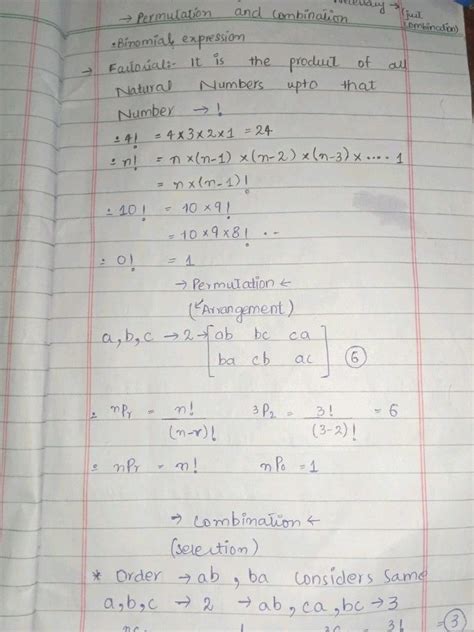 → Permutation and combination
(just combination)
• Binomial, expression
→ Factorial:- It is the product of all
Natural Numbers upto that
Number → !
:: 4! = 4×3×2×1 = 24
:: n! = n×(n-1)×(n-2)×(n-3)×....1
= n×(n-1)!
:: 10! = 10×9!
= 10×9×8! ..
:: 0! = 1
→ Permutation ←
(Arrangement)
a,b,c → 2 → [ab bc ca
ba cb ac] ⑥
:: nPr = n!/(n-r)! 3P2 = 3!/(3-2)! = 6
:: nPr = n! nP0 = 1
→ Combination ←
(selection)
* Order → ab, ba considers same
a,b,c → 2 → ab, ca, bc → 3
3! = ③